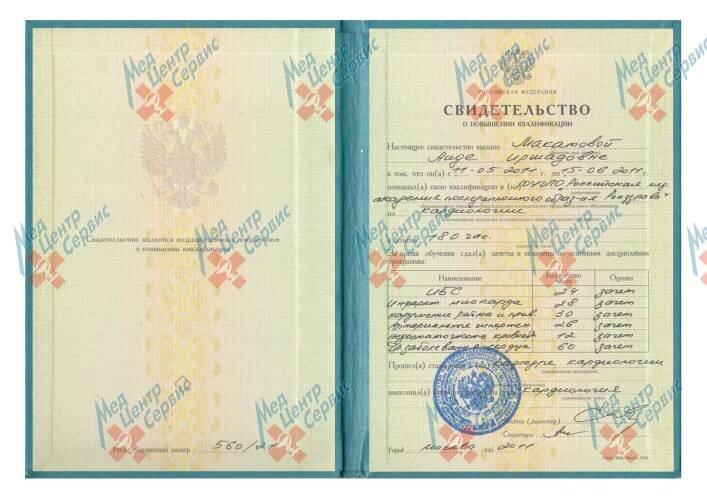 Свидетельство является государственным документом
о повышении квалификации
Регистрационный номер 560/21
РОССИЙСКАЯ ФЕДЕРАЦИЯ
СВИДЕТЕЛЬСТВО
О ПОВЫШЕНИИ КВАЛИФИКАЦИИ
Настоящее свидетельство выдано Макатовой
Аиде Иршадовне
в том, что он(а) с 11-05 2011 г. по 15-06 2011 г.
повышал(а) свою квалификацию в (на) Российская мед.
академия последипломного образ-ия Росздрава"
по кардиологии
180 час.
За время обучения сдал(а) зачеты и экзамены по основным дисциплинам
программы:
Наименование Количество Оценка
ИБС 24 зачет
Инфаркт миокарда 28 зачет
нарушение ритма и пров. 30 зачет
Артериальные гипертен. 26 зачет
недостаточность кровооб. 12 зачет
заболевания сердца 60 зачет
Прошел(а) кардиологии
выполнил(а) кардиология
(директор)
Секретарь
Город Москва год 2011
Мед Центр Сервис